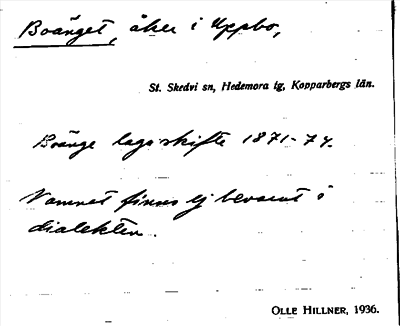 Boänget, åker i Uppbo,
St. Skedvi sn, Hedemora tg, Kopparbergs län.
Boänge lagaskifte 1871-74.
Namnet finns ej bevarat i
dialekten.
OLLE HILLNER, 1936.